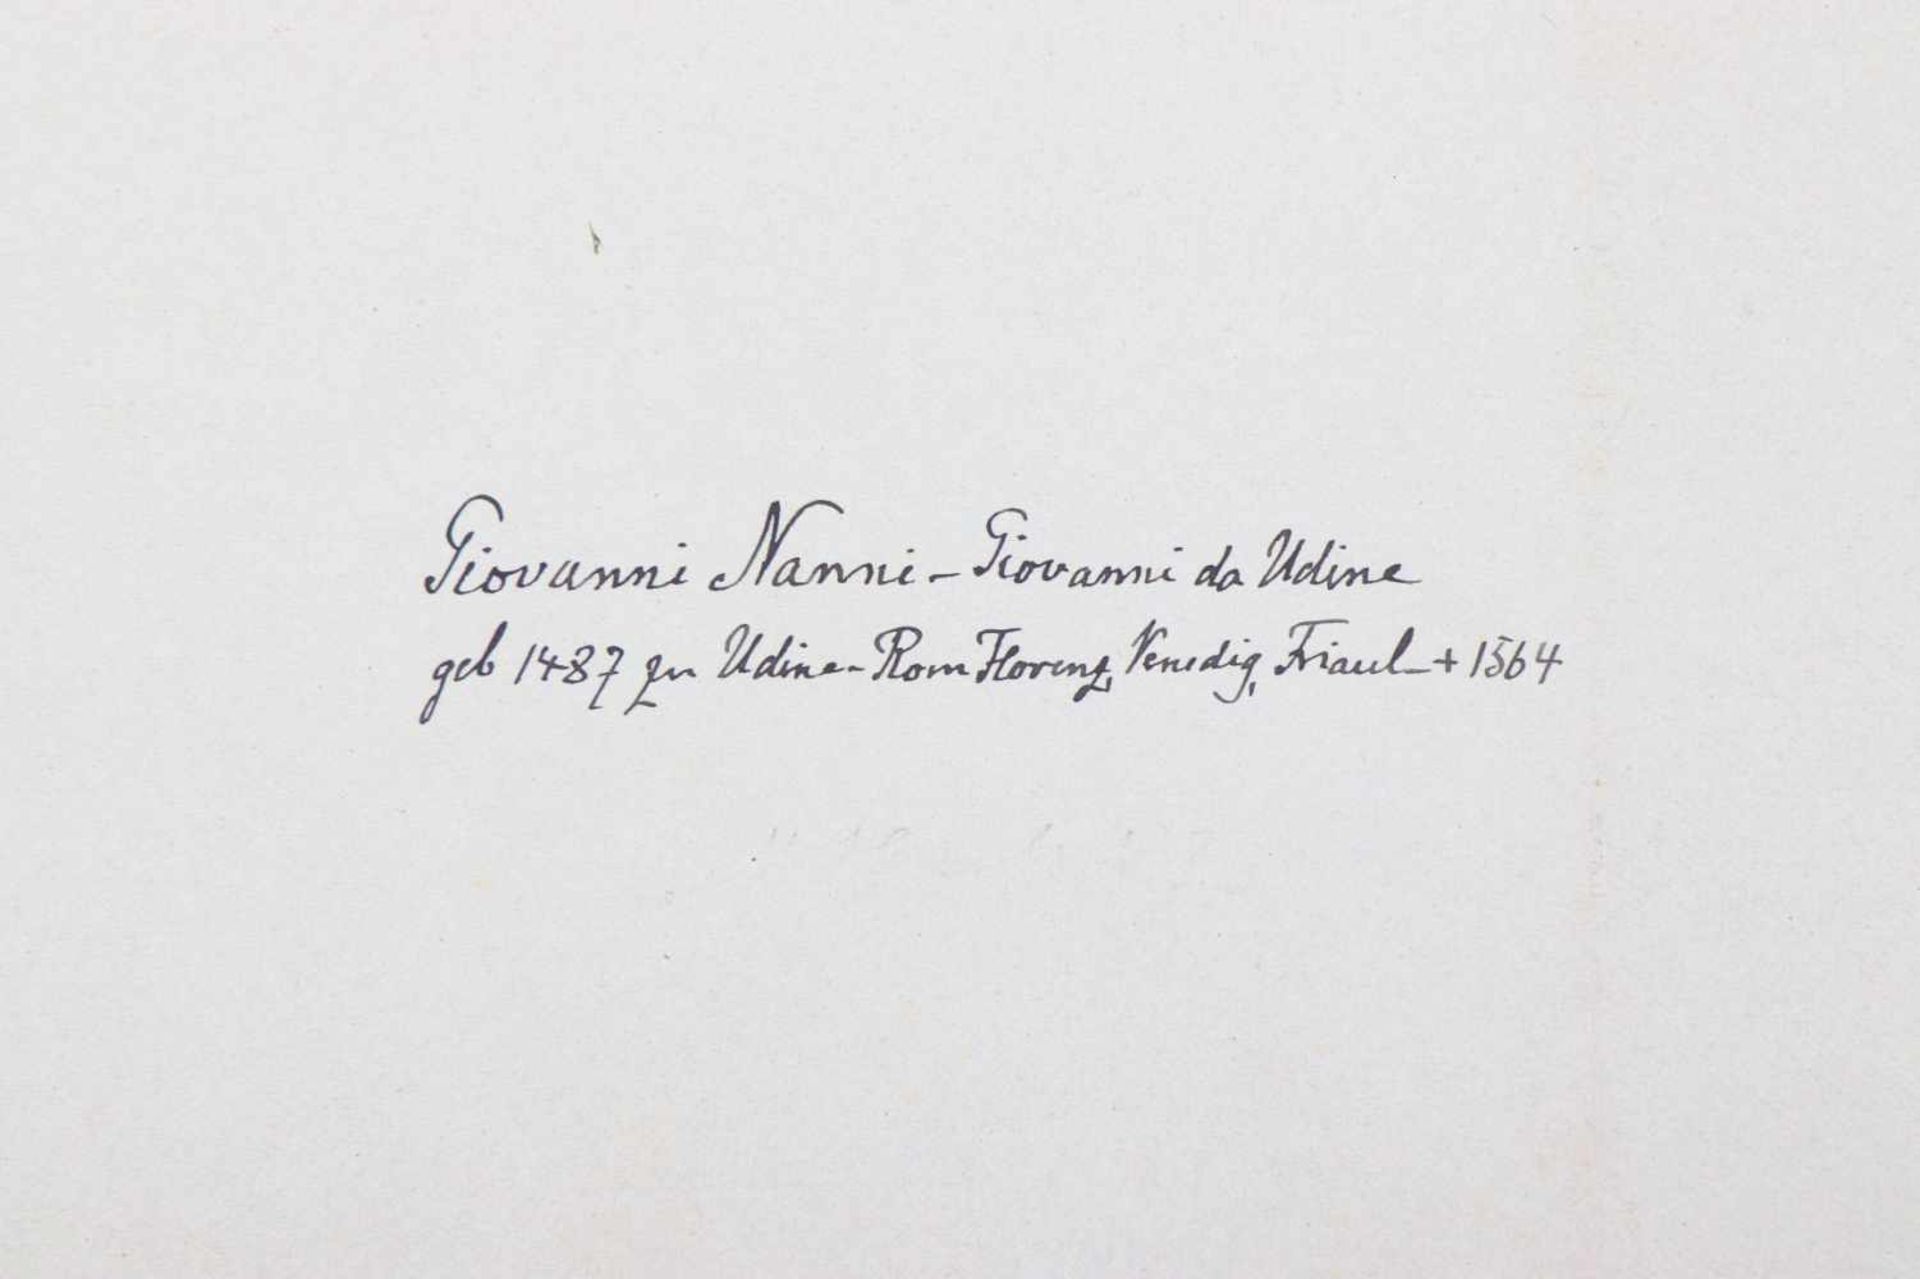 Giovanni Nanni - Giovanni da Udine
geb 1487 zu Udine - Rom Florenz, Venedig, Friaul - + 1564